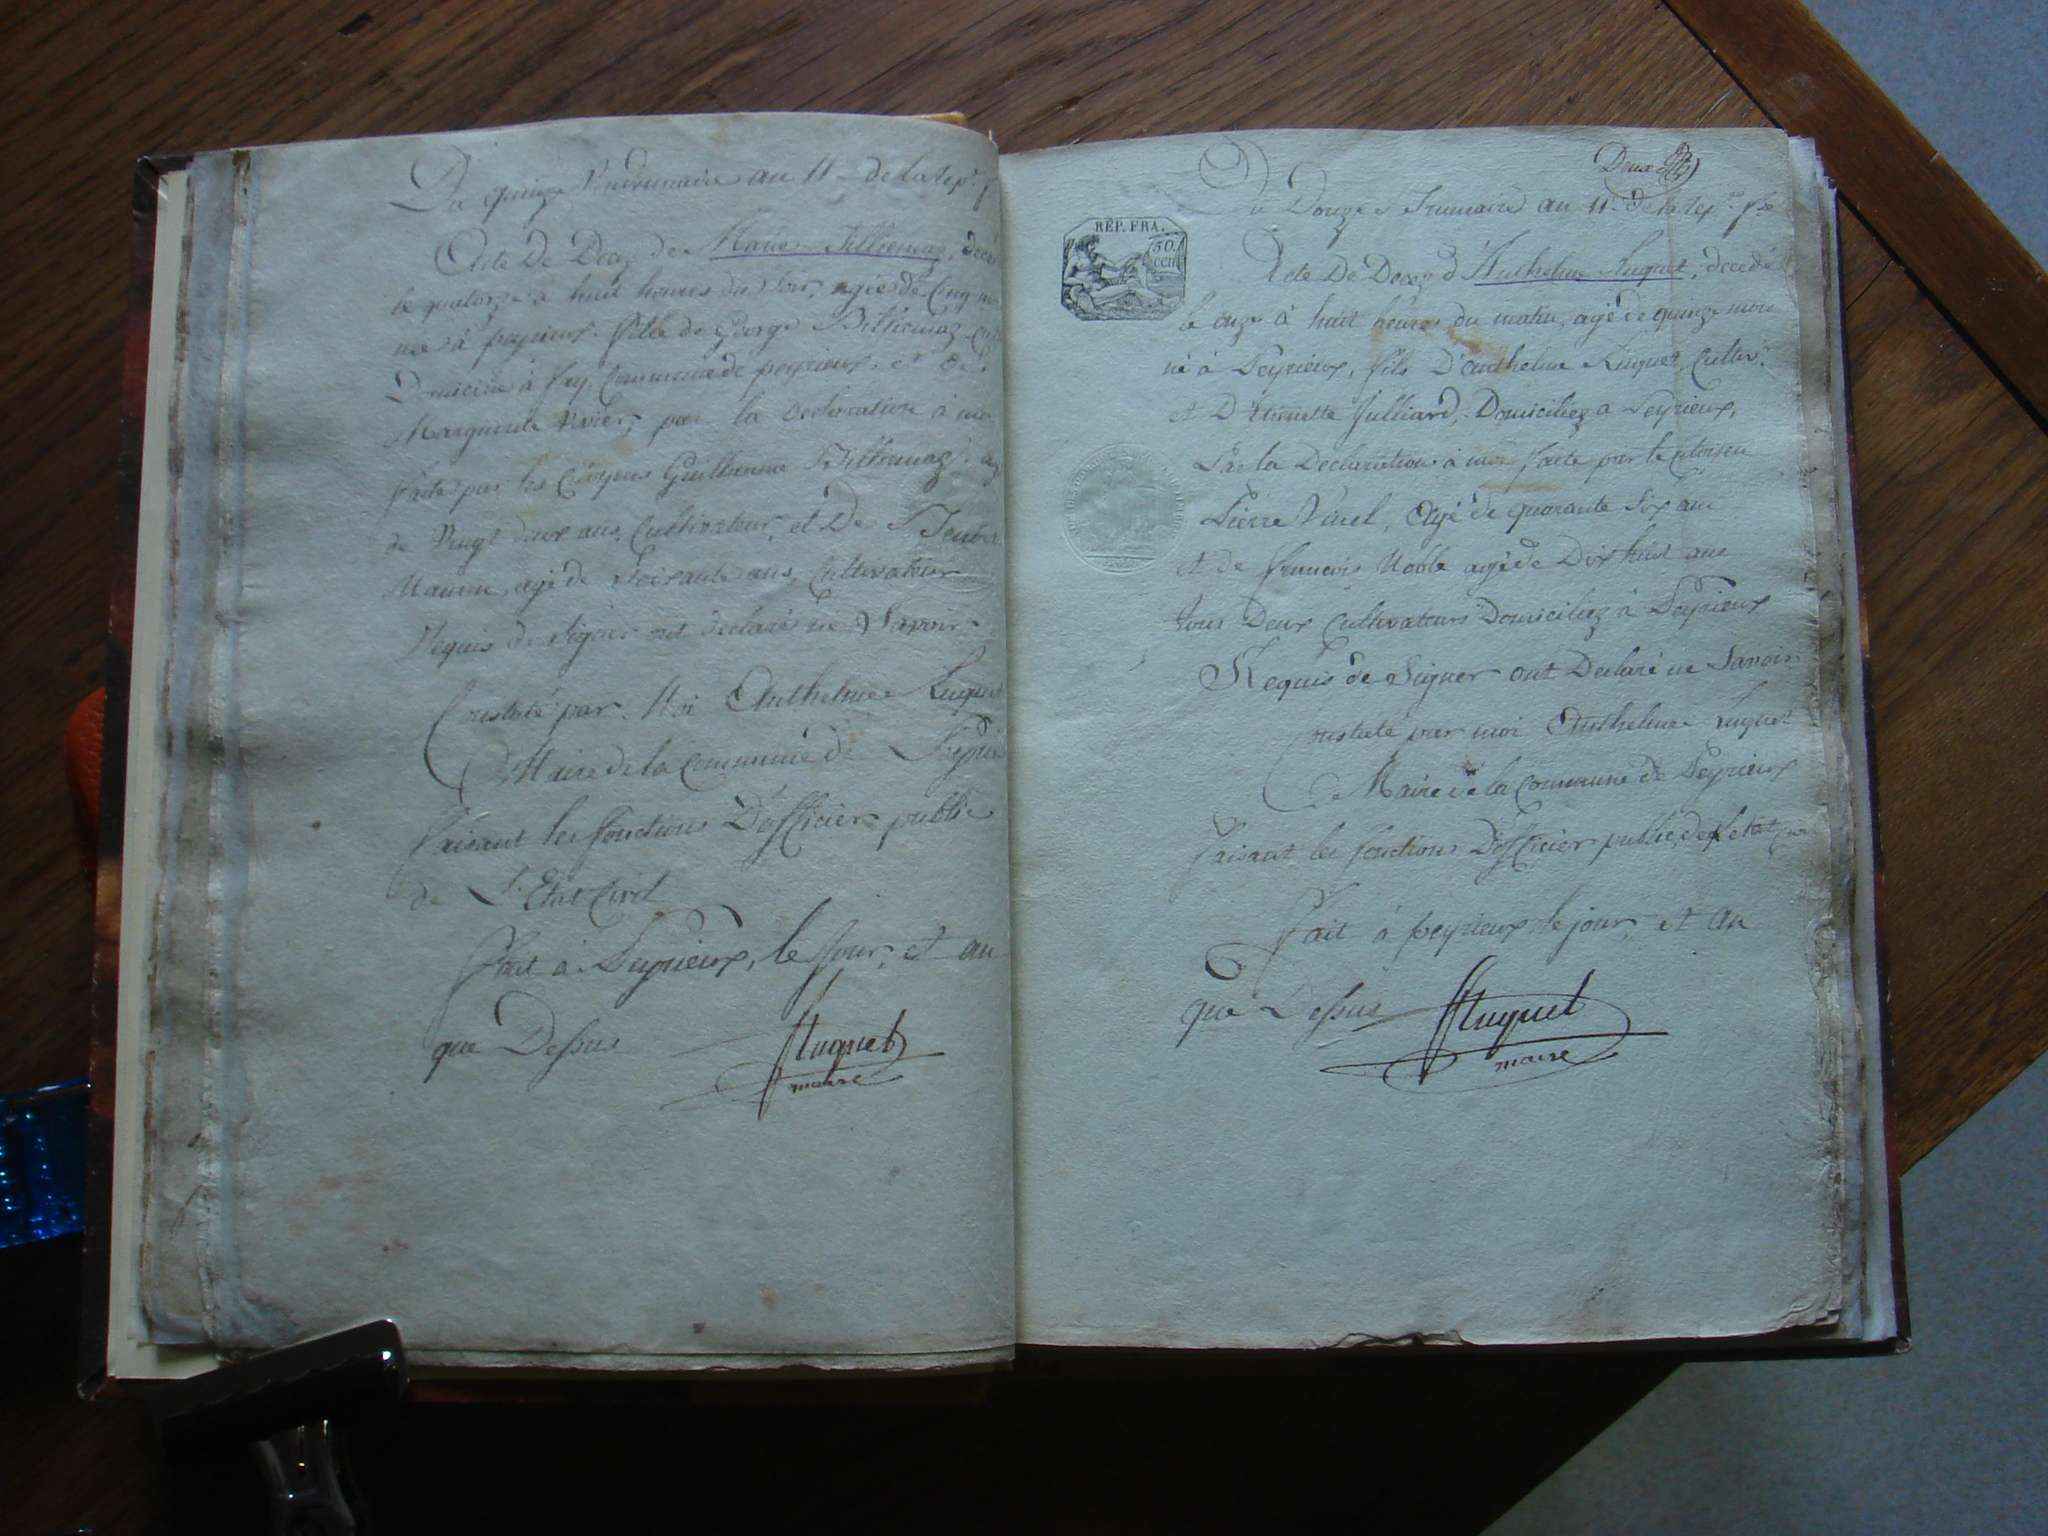 Du quinze Vendemiaire an 11 de la rep.
Acte De Decez de Marie Billiemaz, décé
le quatorze à huit heures du Soir, agée de Cinq
née à peyrieux. fille de George Billiemaz
Domicilié à fay, Commune de peyrieux, et de
Marguerite Vivier, par la declaration à moi
faite par les Citoyens Guillaume Billiemaz
de Vingt deux ans, Cultivateur, et De
agé de Soixante ans, Cultivateur
Requis de Signer ont declaré ne Savoir
Constaté par Moi Anthelme Luquet
Maire de la Commune de Peyrieu
faisant les fonctions D'officier public
de L'Etat Civil
Fait à Peyrieux, le Jour, et an
que Dessus
Huguet
maire
Deux
REP. FRA.
50.
CEN.
Du Douze Frumaire an 11 de la rep. fse
Acte De Decez d'Anthelme Luquet, decedé
le onze à huit heures du matin, agé de quinze mois
né à Peyrieux, fils D'anthelme Luquet, Cultiv.
et D'Etiennette Julliard, Domiciliez a Peyrieux,
Par la Declaration à moi faite par le citoien
Pierre Vinel, Agé de quarante Six ans
et de francois Noble agé de Dix huit ans
tous Deux Cultivateurs Domiciliez à Peyrieux
Requis de Signer ont Declaré ne Savoir
Constaté par moi Anthelme Luquet
Maire de la Commune de Peyrieux
faisant les fonctions D'officier public de l'etat
Fait à peyrieux le jour, et an
que Dessus
Huguet
maire